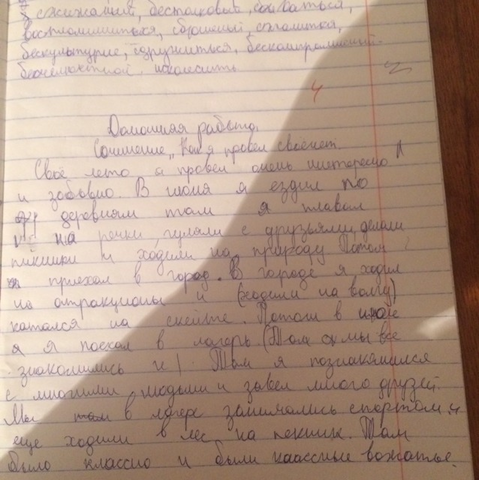 сжижаться, бестолковый, сбываться,
воспламениться, сборный, соглашаться,
бескультурие, сгруппиться, бескомпромиссный.
4
Домашняя работа.
Сочинение „Как я провел своё лет
Своё лето я провел очень интересно
и забавно. В июня я ездил по
деревням там я плавал
на речки, гуляли с друзьями, делали
пикники и ходили на природу. Потом
приехал в город. В городе я ходил
на атракционы и (ходили на волгу)
катался на скейте. Потом в июле
я я поехал в лагерь. (Там мы все
знакомились и). Там я познакомился
с многими людьми и завел много друзей.
Мы там в лагере занимались спортом, и
еще ходили в лес на пекник. Там
было классно и были классные вожатые.